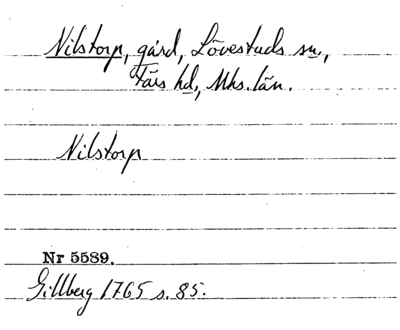 Nilstorp, gård, Lövestads sn.,
Färs hd, Mhs. län.
Nilstorp
Nr 5589.
Gillberg 1765 s. 85.